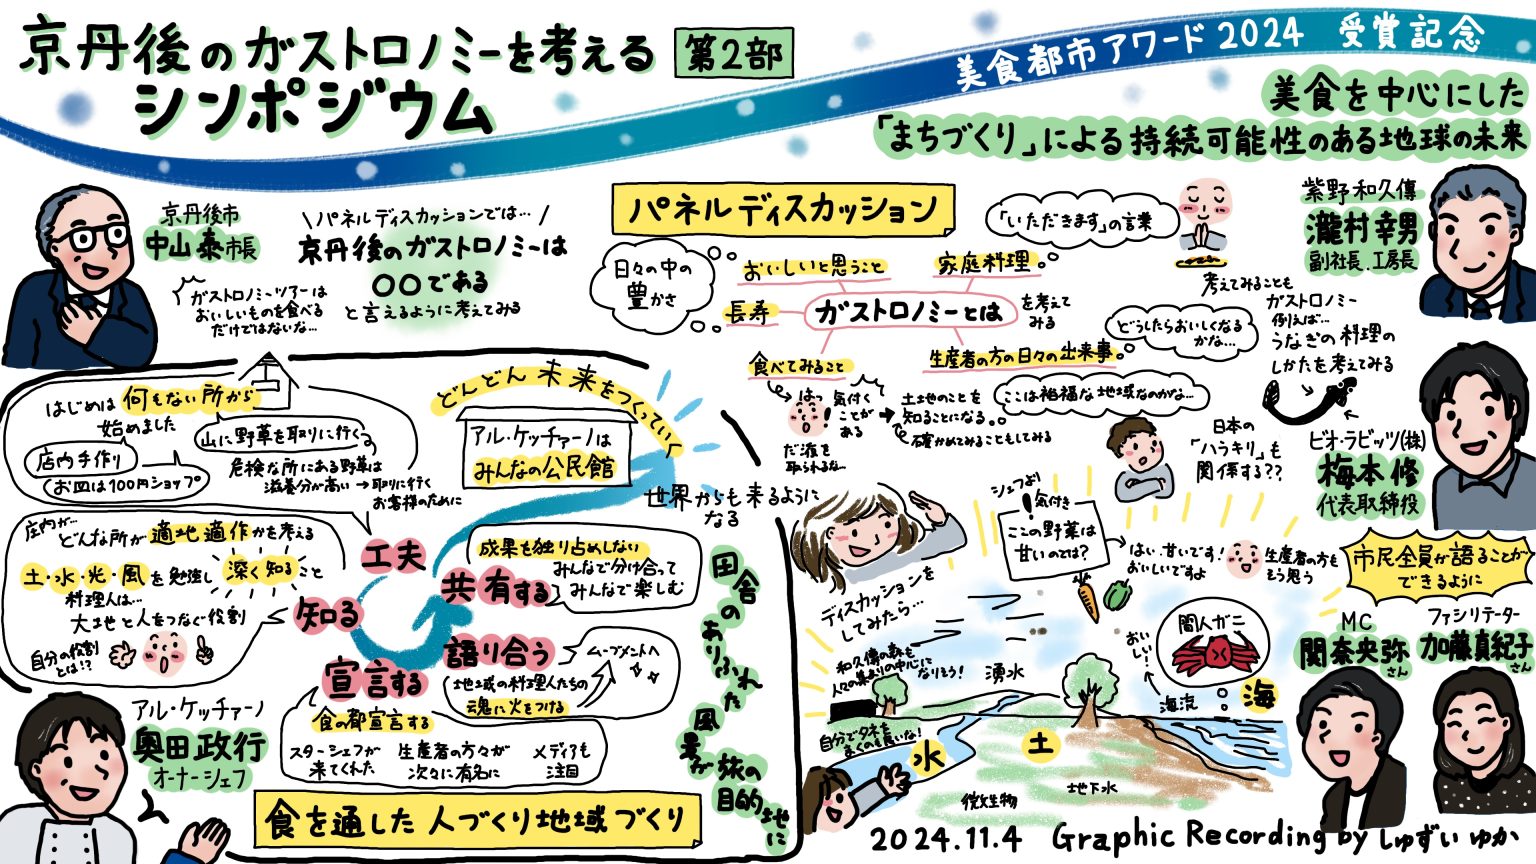 京丹後のガストロノミーを考える
シンポジウム
第2部
美食都市アワード2024 受賞記念
美食を中心にした
「まちづくり」による持続可能性のある地球の未来
京丹後市
中山 泰市長
パネルディスカッションでは…
京丹後のガストロノミーは
〇〇である
と言えるように考えてみる
ガストロノミーツアーは
おいしいものを食べる
だけではないな…
パネルディスカッション
日々の中の
豊かさ
おいしいと思うこと
家庭料理
長寿
ガストロノミーとは
を考えて
みる
食べてみること
生産者の方の日々の出来事
「いただきます」の言葉
どうしたらおいしくなる
かな…
ここは裕福な地域なのかな…
はっ
だ液を
取られるな…
気付く
ことが
ある
土地のことを
知ることになる。
確かめてみることもしてみる
紫野和久傳
瀧村幸男
副社長.工房長
考えてみることも
ガストロノミー
例えば…
うなぎの料理の
しかたを考えてみる
日本の
「ハラキリ」も
関係する??
ビオ・ラビッツ(株)
梅本修
代表取締役
市民全員が語ることが
できるように
MC
関奈央弥
さん
ファシリテーター
加藤真紀子
さん
はじめは何もない所から
始めました
山に野草を取りに行く
店内手作り
お皿は100円ショップ
危険な所にある野草は
滋養分が高い→取りに行く
お客様のために
どんどん未来をつくっていく
アル・ケッチァーノは
みんなの公民館
世界からも来るように
なる
店内が…
どんな所が適地適作かを考える
土・水・光・風を勉強し
深く知ること
料理人は…
大地と人をつなぐ役割
自分の役割
とは!?
工夫
知る
共有する
宣言する
語り合う
成果を独り占めしない
みんなで分け合って
みんなで楽しむ
ムーブメントへ
地域の料理人たちの
魂に火をつける
食の都宣言する
スターシェフが
来てくれた
生産者の方々が
次々に有名に
メディアも
注目
田舎のありふれた風景が旅の目的地に
アル・ケッチァーノ
奥田政行
オーナーシェフ
食を通した人づくり地域づくり
ディスカッションを
してみたら…
シェフより
!気付き
ここの野菜は
甘いのでは?
はい.甘いです!
おいしいですよ
生産者の方も
そう思う
和久傳の森も
人々の集まりの中心に
なりそう!
湧水
おいしい!
間人ガニ
海流
海
自分でタネを
まくのも良いな!
水
土
微生物
地下水
2024.11.4 Graphic Recording by しゅずい ゆか